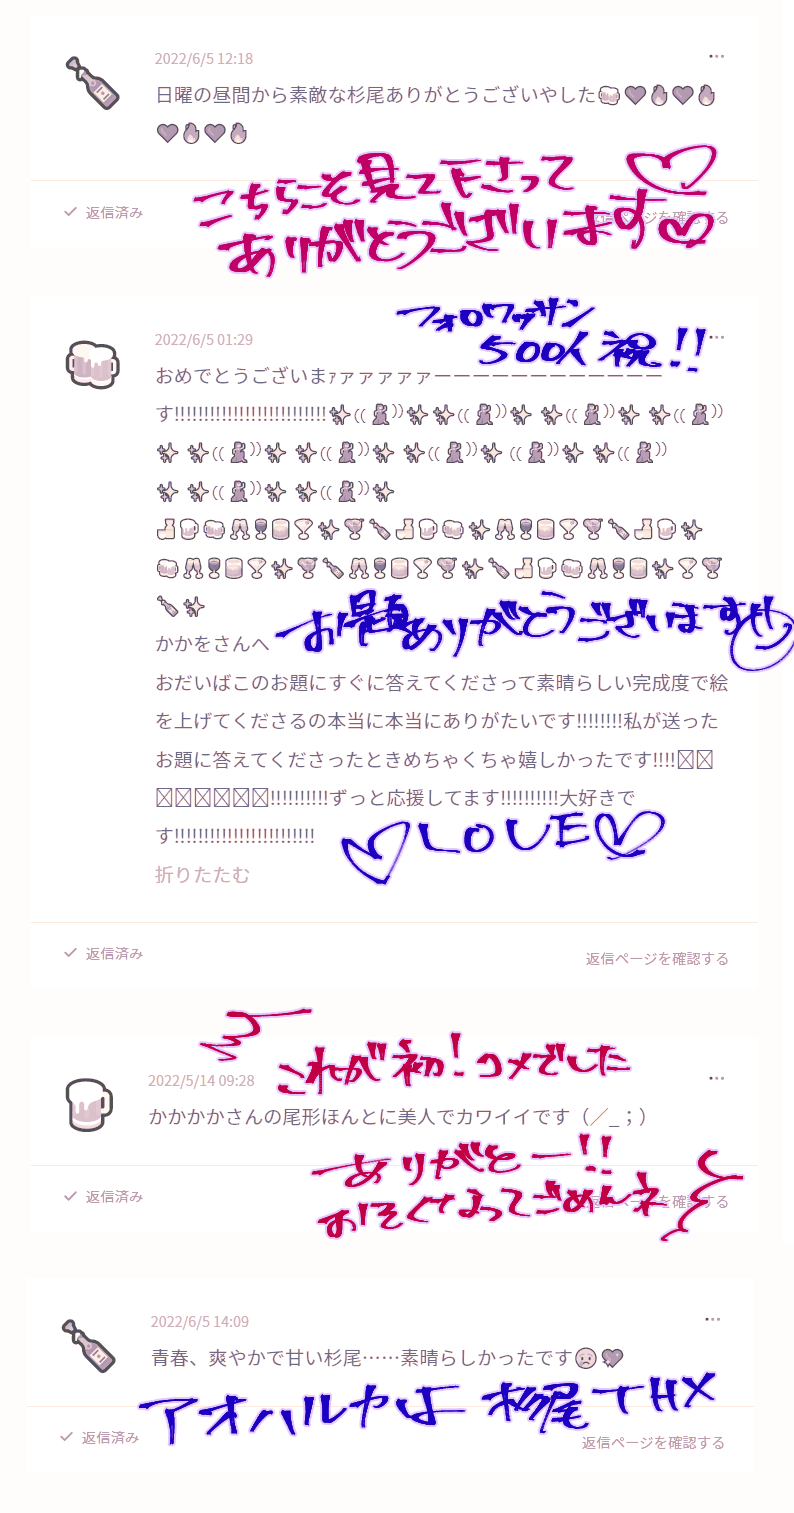 2022/6/5 12:18
日曜の昼間から素敵な杉尾ありがとうございやした🍻❤🔥❤🔥
❤🔥❤🔥
こちらこそ見て下さって♡
ありがとうございます♡
返信済み
返信ページを確認する
フォロワッサン
500人祝!!
2022/6/5 01:29
おめでとうございまァァァァァァーーーーーーーーーーーー
す!!!!!!!!!!!!!!!!!!!!!!!!!!
お題ありがとうございます
かかをさんへ
おだいばこのお題にすぐに答えてくださって素晴らしい完成度で絵
を上げてくださるの本当に本当にありがたいです!!!!!!!!私が送った
お題に答えてくださったときめちゃくちゃ嬉しかったです!!!!
!!!!!!!!!!ずっと応援してます!!!!!!!!!!大好きで
す!!!!!!!!!!!!!!!!!!!!!!!!
♡LOVE♡
折りたたむ
返信済み
返信ページを確認する
これが初!コメでした
2022/5/14 09:28
かかかかさんの尾形ほんとに美人でカワイイです（／_；）
ありがとー!!
おそくなってごめんネ
返信済み
返信ページを確認する
2022/6/5 14:09
青春、爽やかで甘い杉尾……素晴らしかったです
アオハルやは 杉尾 THX
返信済み
返信ページを確認する